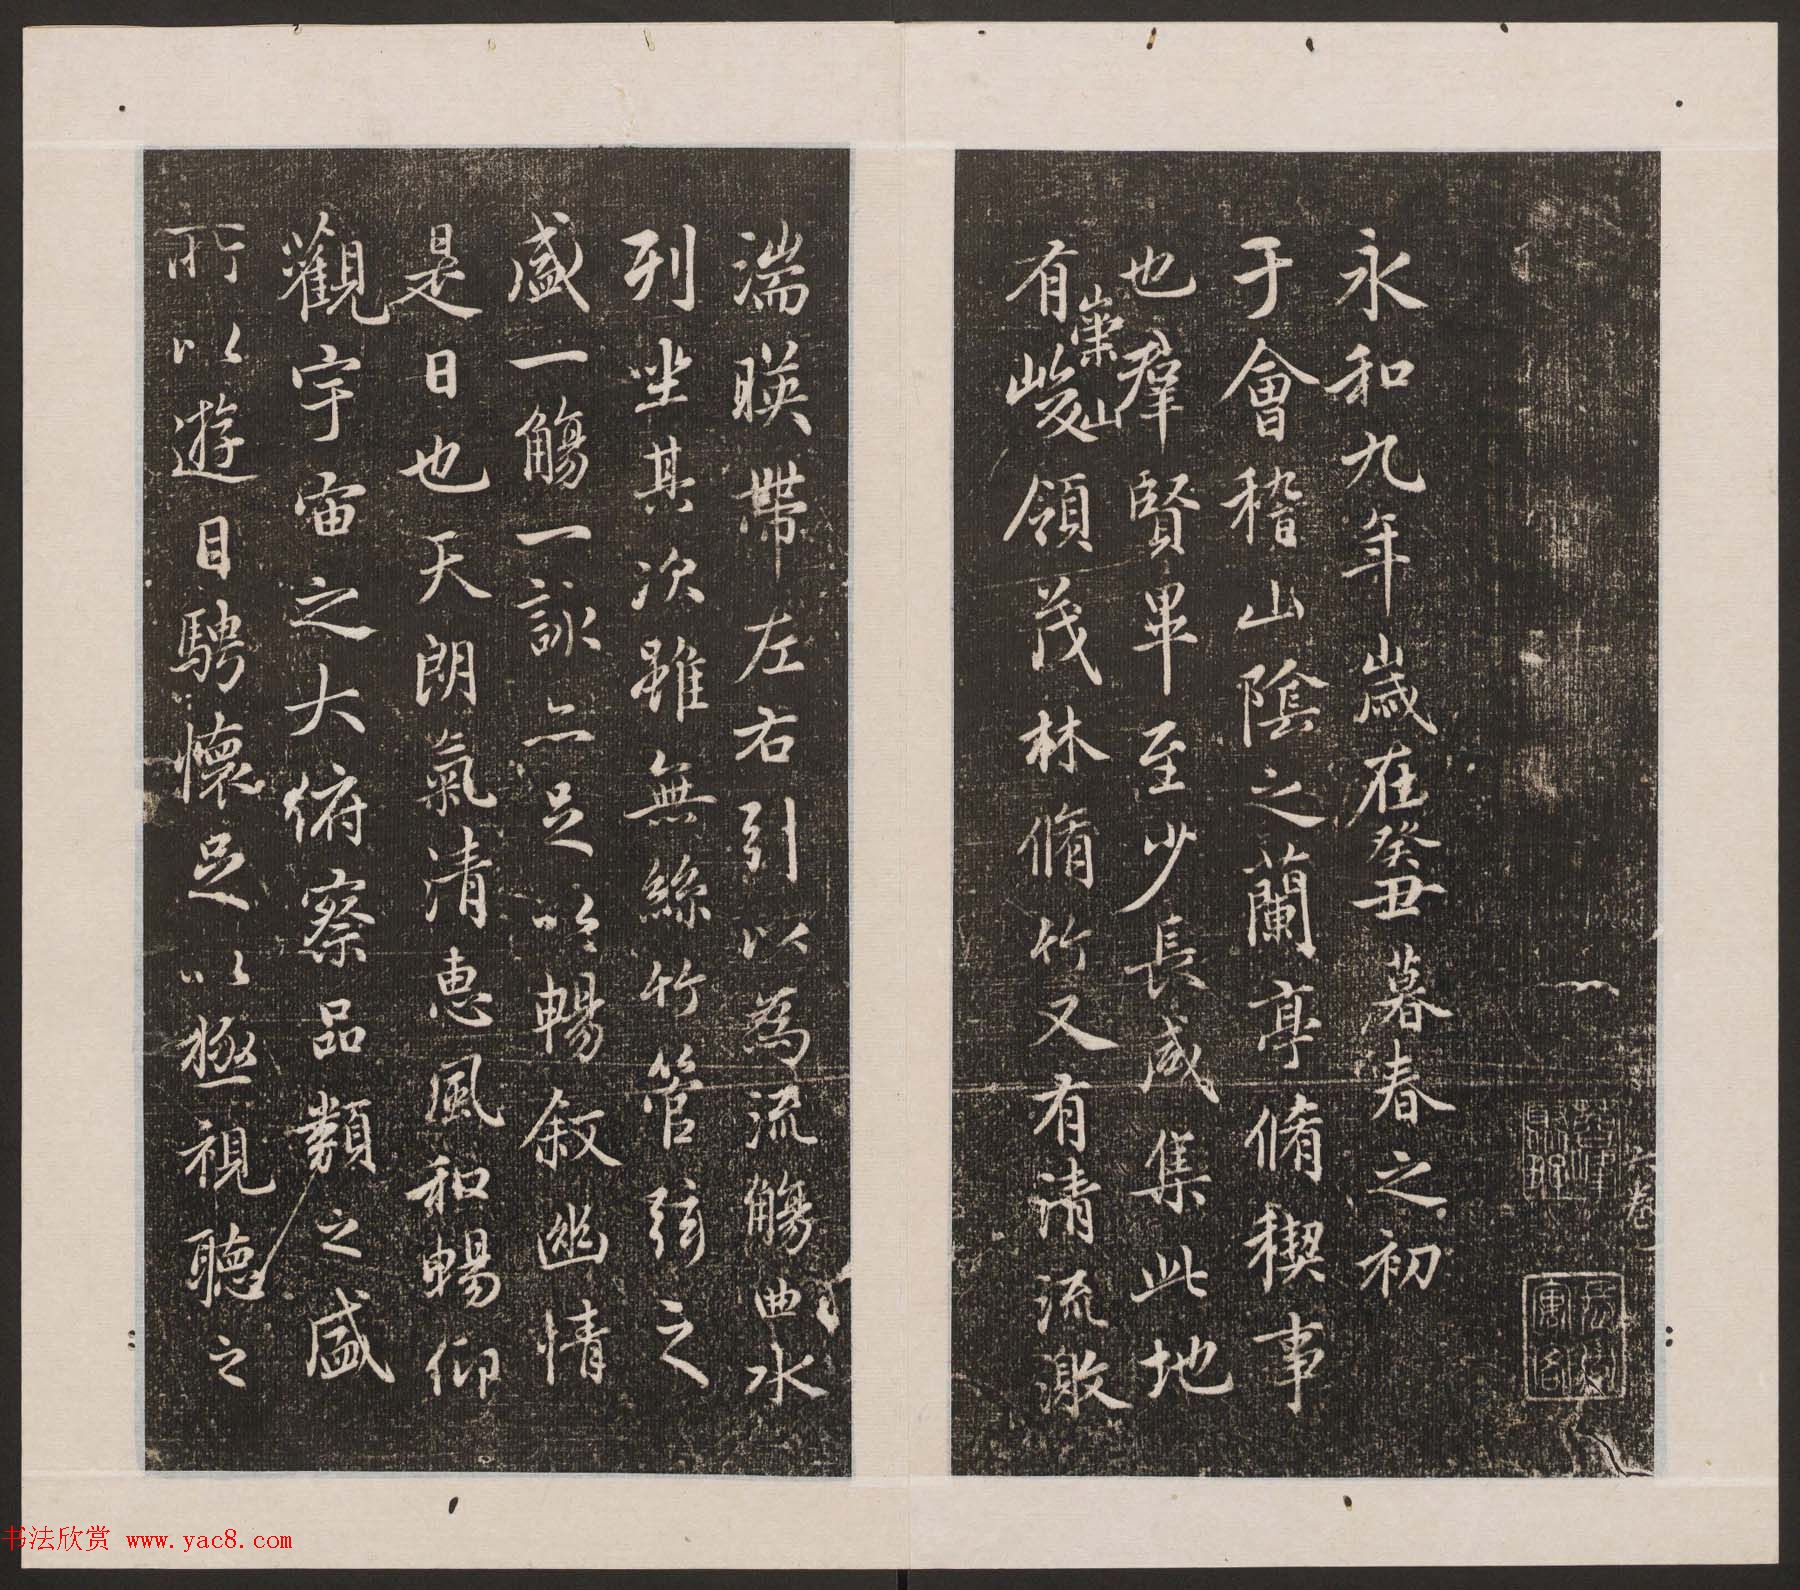 永和九年歲在癸丑暮春之初
于會稽山陰之蘭亭脩稧事
也羣賢畢至少長咸集此地
有崇山峻領茂林脩竹又有清流激
湍暎帶左右引以為流觴曲水
列坐其次雖無絲竹管弦之
盛一觴一詠亦足以暢敘幽情
是日也天朗氣清惠風和暢仰
觀宇宙之大俯察品類之盛
所以遊目騁懷足以極視聽之
书法欣赏 www.yac8.com